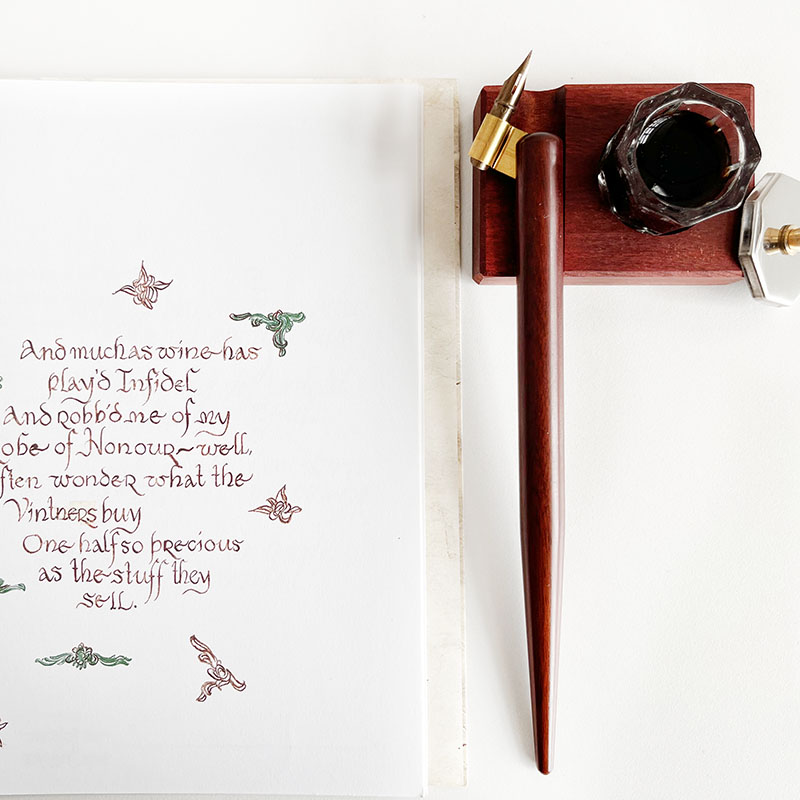 And much as wine has
play'd Infidel
And robb'd me of my
obe of Honour~well,
ften wonder what the
Vintners buy
One half so precious
as the stuff they
sell.